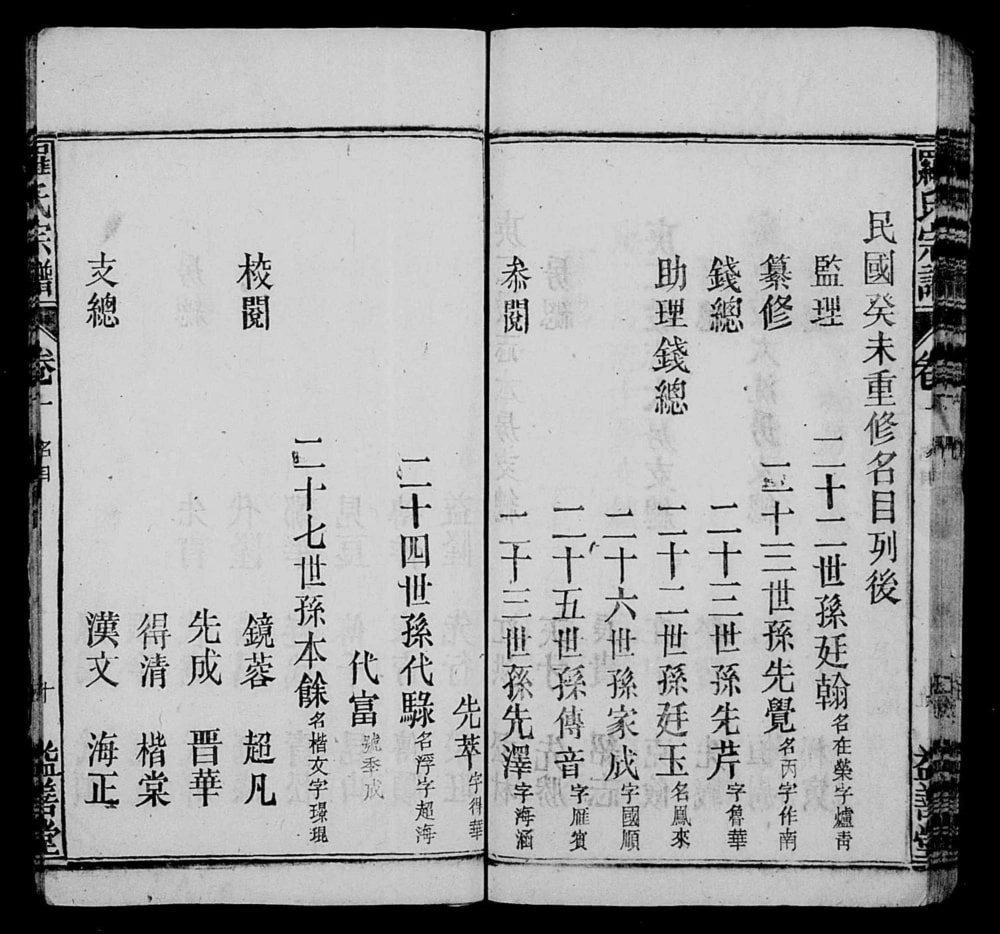 羅氏宗譜 卷一 名目 益善堂
民國癸未重修名目列後
監理 二十二世孫廷翰名在榮字爐青
纂修 二十三世孫先覺名丙字作南
錢總 二十三世孫先芹字魯華
助理錢總 二十二世孫廷玉名鳳來
二十六世孫家成字國順
二十五世孫傳音字雁賓
叅閱 二十三世孫先澤字海涵
先萃字律華
二十四世孫代騄名浮字超海
代富號季成
二十七世孫本餘名楷文字璟琨
校閱 鏡蓉 超凡
先成 晋華
得清 楷棠
支總 漢文 海正
羅氏宗譜 卷一 名目 十 益善堂